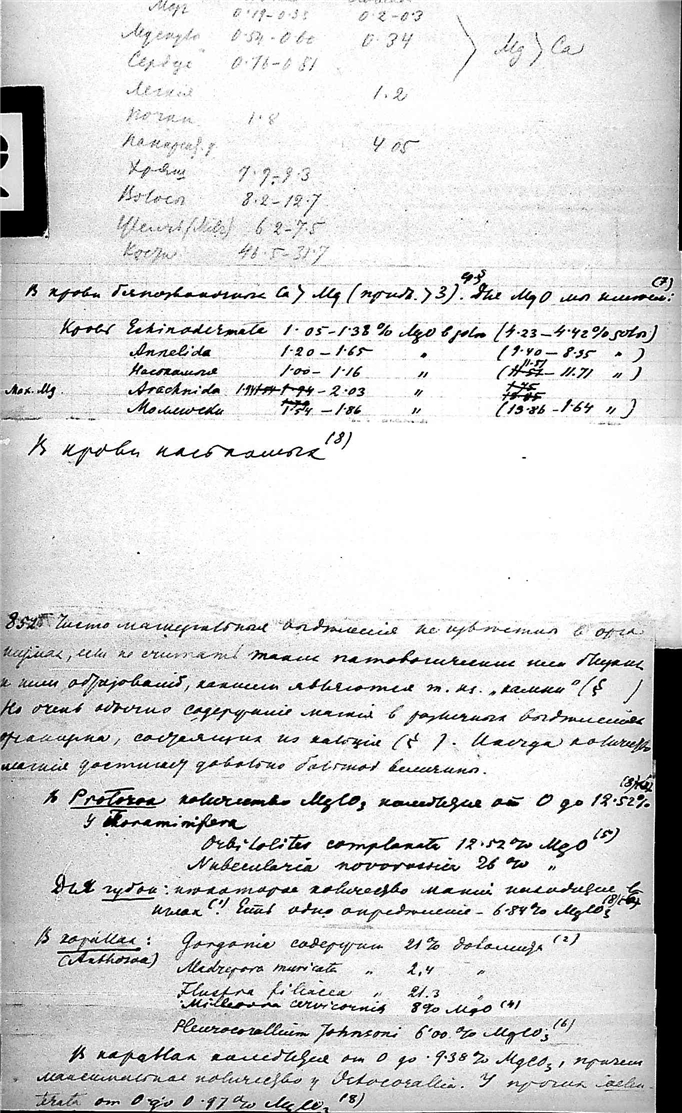 Мозг 0.19-0.35 0.2-0.3
0.54-0.60 0.34 } Mg > Ca
Сердце 0.76-0.81
Легкия 1.2
Почки 1.8
4.05
Хрящ 7.9-9.3
Волосы 8.2-12.7
6.2-7.5
Кости 46.5-
В крови беспозвоночных Ca > Mg ( > 3). Для MgO мы имеем: (7)
Кровь Echinodermata 1.05-1.38% MgO в золе (4.23-4.42% золы)
Annelida 1.20-1.65 " (9.40-8.35 " )
Насекомыя 1.00-1.16 " ( 11.51 - 11.71 " )
Мах. Mg. Arachnida - 2.03 "
Моллюски 1.54 - 1.86 " (13.86 - 1.64 " )
В крови насекомых (8)
852. Чисто магнезиальныя выделения не известны в орга
низмах, если не считать таких патологических или близких
к ним образований, какими являются т. наз. "камни" (§ )
Но очень обычно содержание магния в различных выделениях
организма, состоящих из кальция (§ ). Иногда количество
магния достигает довольно большой величины.
В Protozoa количество MgCO3 колеблется от 0 до 12.52% (8)
У Foraminifera
Orbitolites complanata 12.52% MgO (5)
Nubecularia novorossica 26% "
Для губок: некоторое количество магния находящееся в
них (1). Есть одно определение - 6.84% MgCO3 (8)
В кораллах: Gorgonia содержит 21% доломита (2)
(Anthozoa) Madrepora muricata " 2.4 "
Flustra foliacea " 21.3 "
Millepora cervicornis 8% MgO (4)
Pleurocorallium Johnsoni 6.00% MgCO3 (6)
В кораллах колеблется от 0 до 9.38% MgCO3, причем
максимальное количество у Octocorallia. У прочих Coelen-
terata от 0 до 0.97% MgCO3 (8)